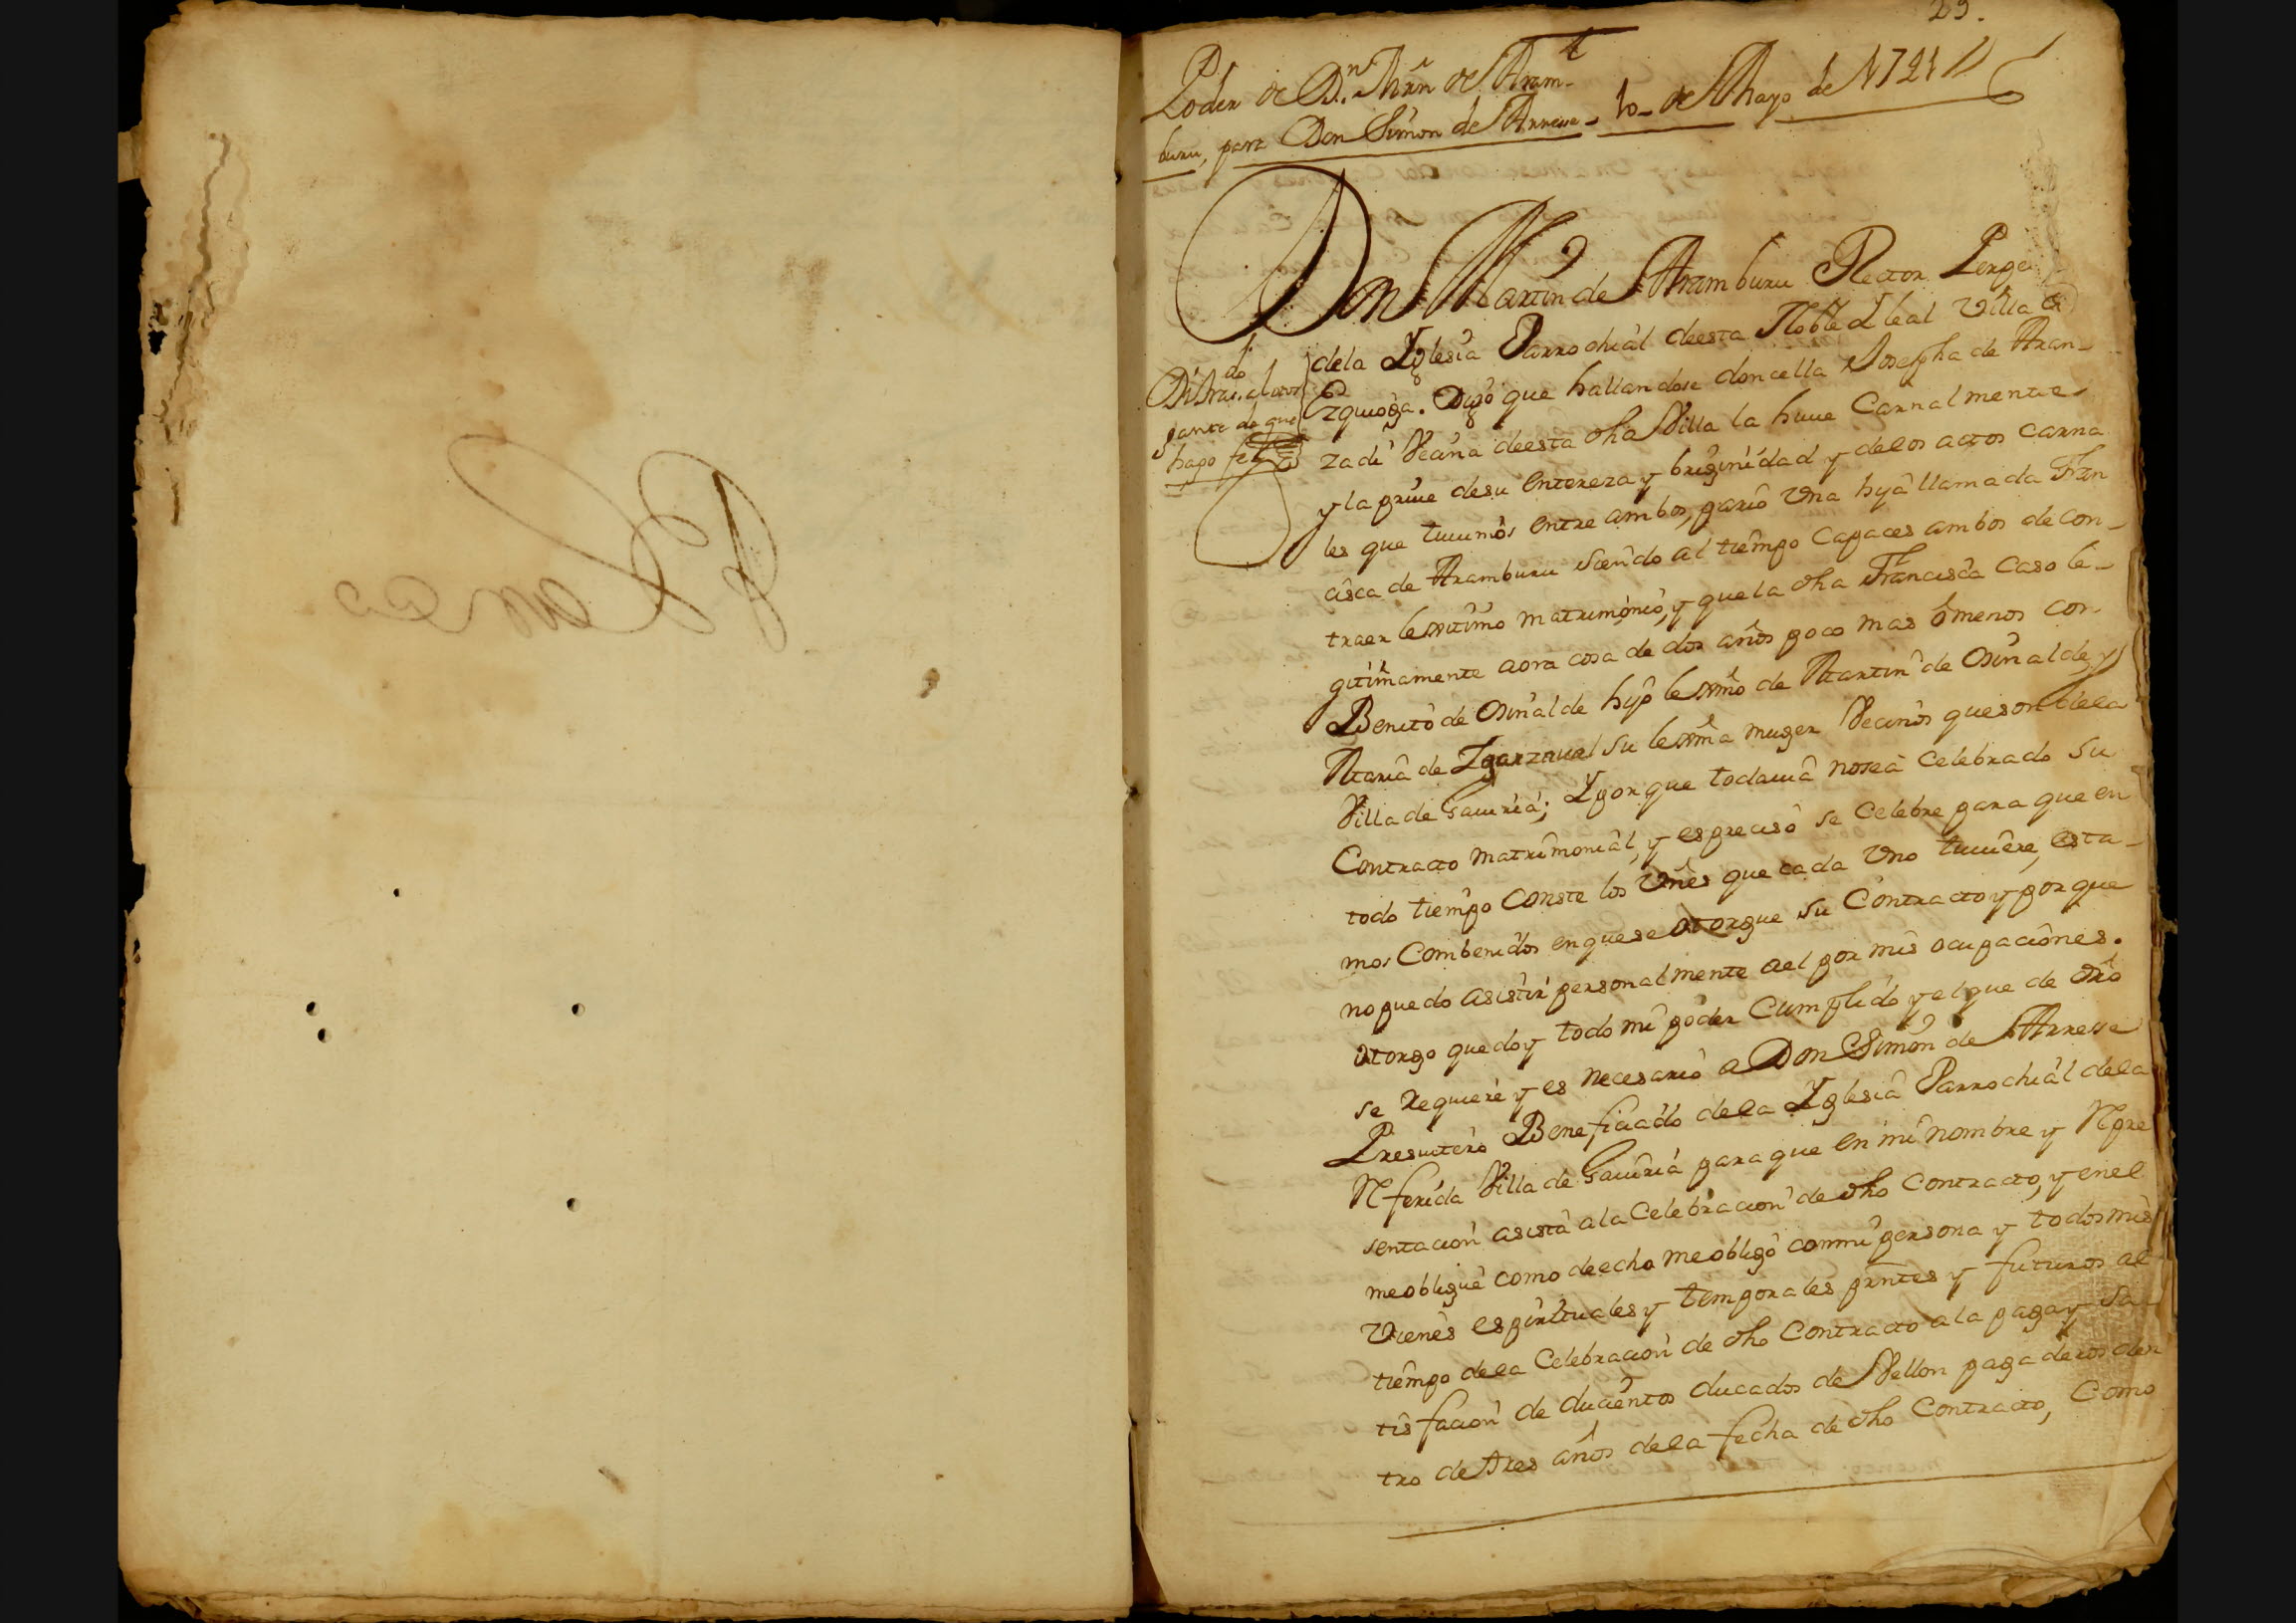 29.
Poder de Dn. Mrn de Aram-
buru, para Don Simon de Arresse - 10 - de Mayo de 1721
Don Martin de Aramburu Rector Perpe
dela Yglesia Parrochial deesta Noble & leal Villa de
Ezquioga. Digo que hallandose doncella Josepha de Aran-
zadi Vecina deesta dha Villa la huue Carnalmente
y la priue desu entereza y birginidad y delos actos carna
les que tuuimos entre ambos, pario Vna hija llamada Fran
cisca de Aramburu siendo al tiempo capaces ambos de con-
traer lexitimo matrimonio, y que la dha Francisca caso le-
gitimamente aora cosa de dos años poco mas ò menos con
Benito de Osinalde hijo lexmo de Martin de Osinalde, y
Maria de Ygarzaual su lexma muger Vecinos que son dela
Villa de Gauiria; Y porque todauia nosea celebrado su
Contracto matrimonial, y es preciso se celebre para que en
todo tiempo conste los Vnes que cada Vno tuuiere, esta-
mos Combenidos en que se otorgue su Contracto y por que
no puedo asistir personalmente ael por mis ocupaciones.
otorgo que doy todo mi poder Cumplido y el que de dro
se requiere y es necesario a Don Simon de Arresse
Presuitero Beneficiado dela Yglesia Parrochial dela
Referida Villa de Gauiria para que en mi nombre y Repre
sentacion asista ala Celebracion de dho Contracto, y enel
meobligue como deecho meobligo conmi persona y todos mis
Vienes espirituales y temporales prntes y futuros al
tiempo dela Celebracion de dho Contracto ala paga y sa-
tisfacion de ducientos ducados de Vellon pagaderos den
tro de tres años dela fecha de dho Contracto, Como
do
Di tras. al otor
gante de que
hago fee